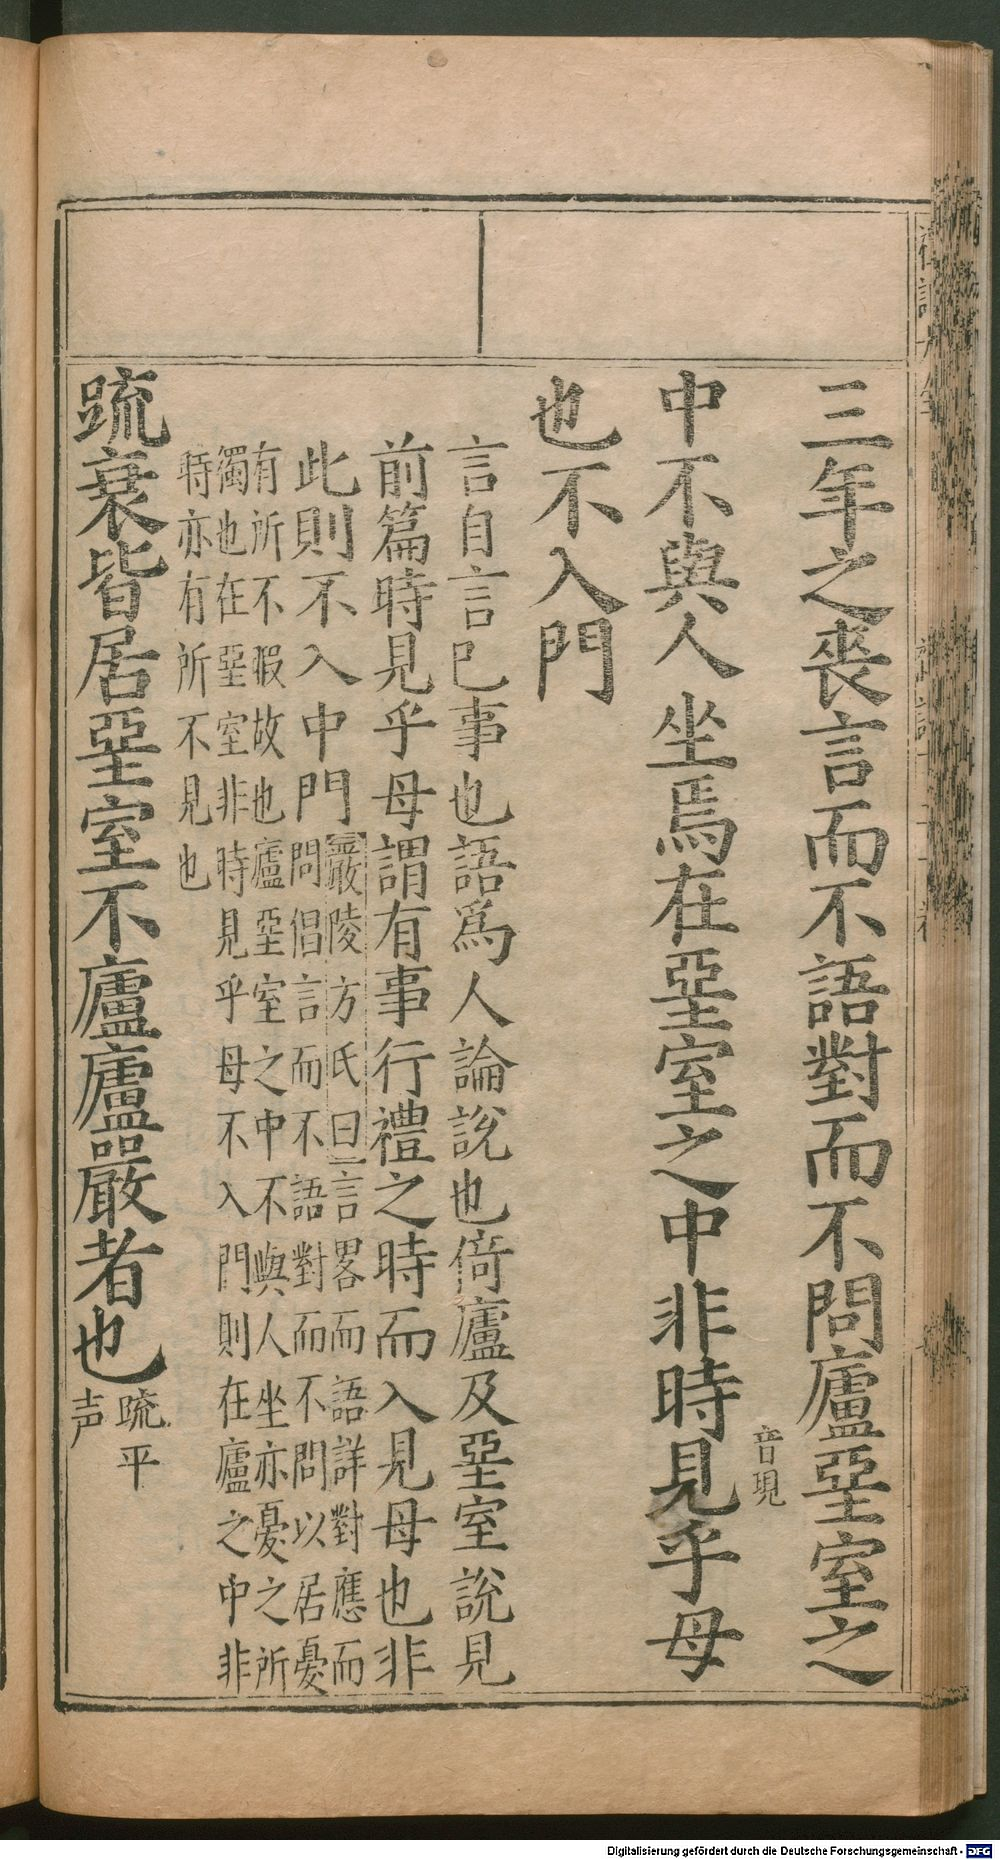 三年之喪言而不語對而不問廬堊室之
中不與人坐焉在堊室之中非時見乎母
音現
也不入門
言自言已事也語爲人論說也倚廬及堊室說見
前篇時見乎母謂有事行禮之時而入見母也非
此則不入中門
嚴陵方氏曰言畧而語詳對應而
問倡言而不語對而不問以居憂
有所不暇故也廬堊室之中不與人坐亦憂之所
獨也在堊室非時見乎母不入門則在廬之中非
時亦有所不見也
䟽衰皆居堊室不廬廬嚴者也
䟽平
声
Digitalisierung gefördert durch die Deutsche Forschungsgemeinschaft - DFG